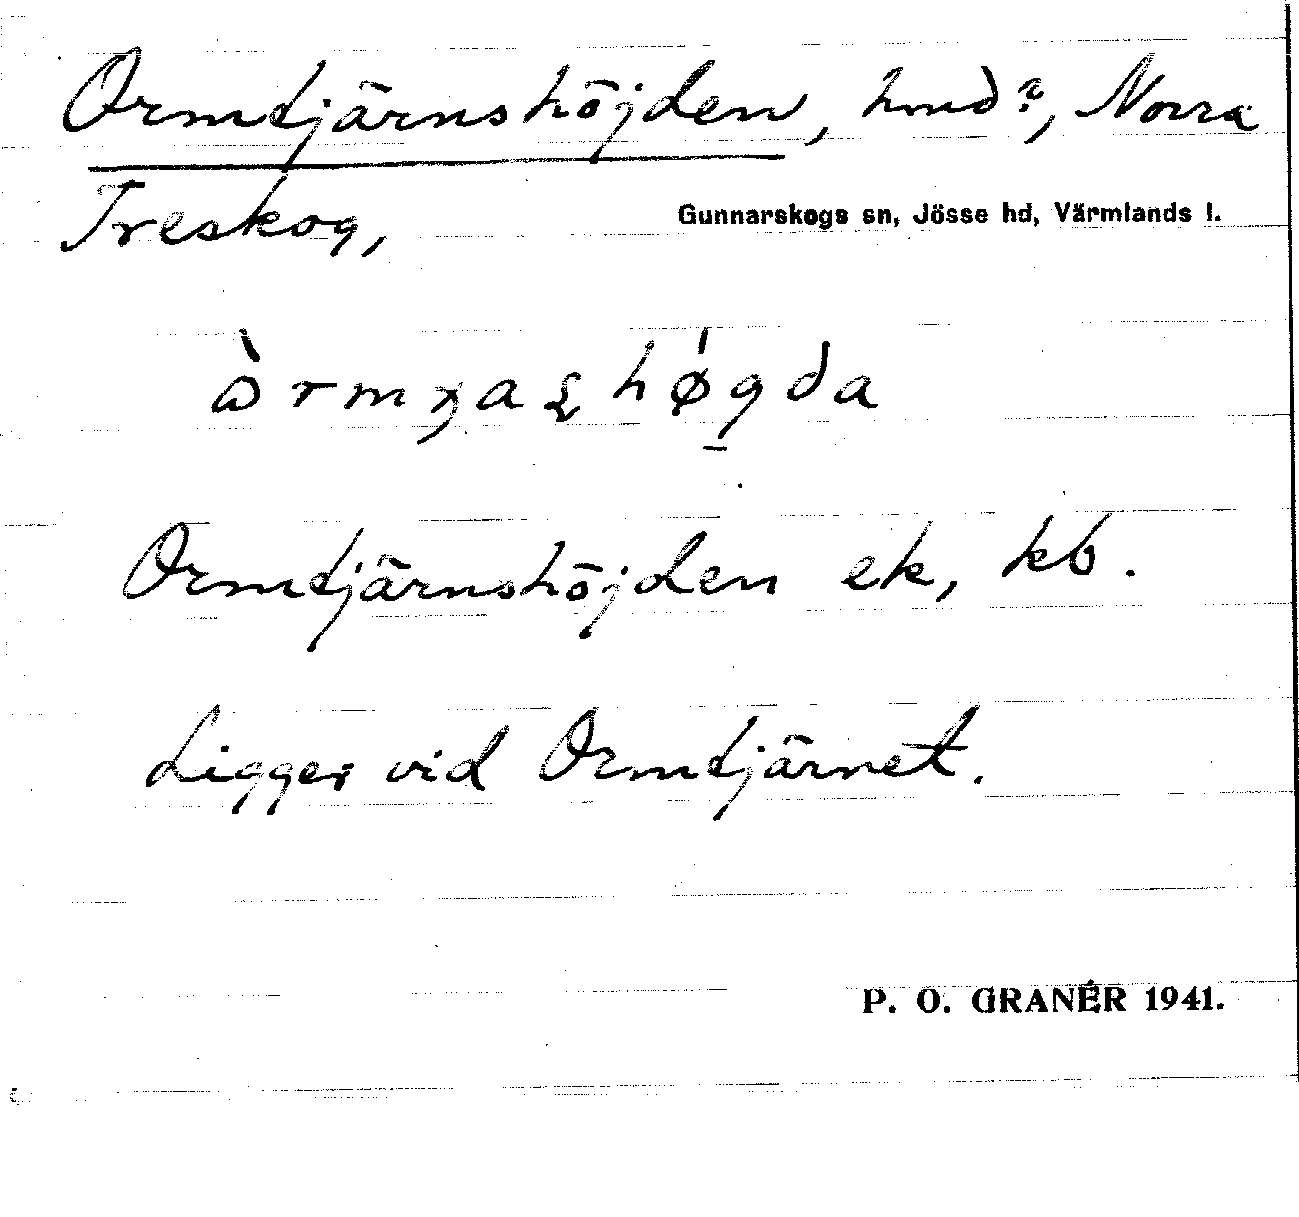 Ormtjärnshöjden, hmd?, Norra
Treskog,
Gunnarskogs sn, Jösse hd, Värmlands l.
Ormtjärnshöjden ek, kb.
Ligger vid Ormtjärnet.
P. O. GRANÉR 1941.